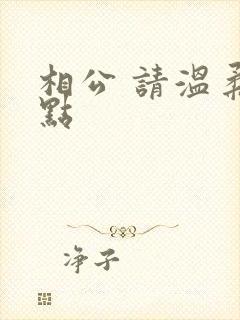 相公 請溫柔
點
净子